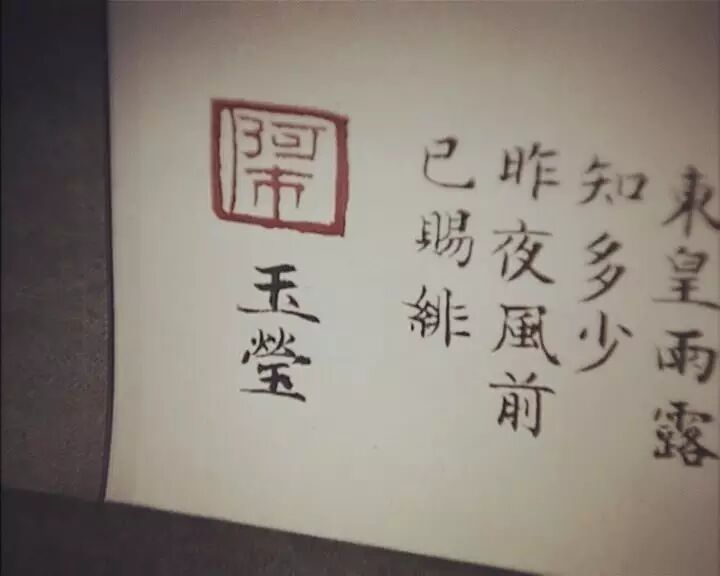 東皇雨露
知多少
昨夜風前
已賜緋
玉瑩